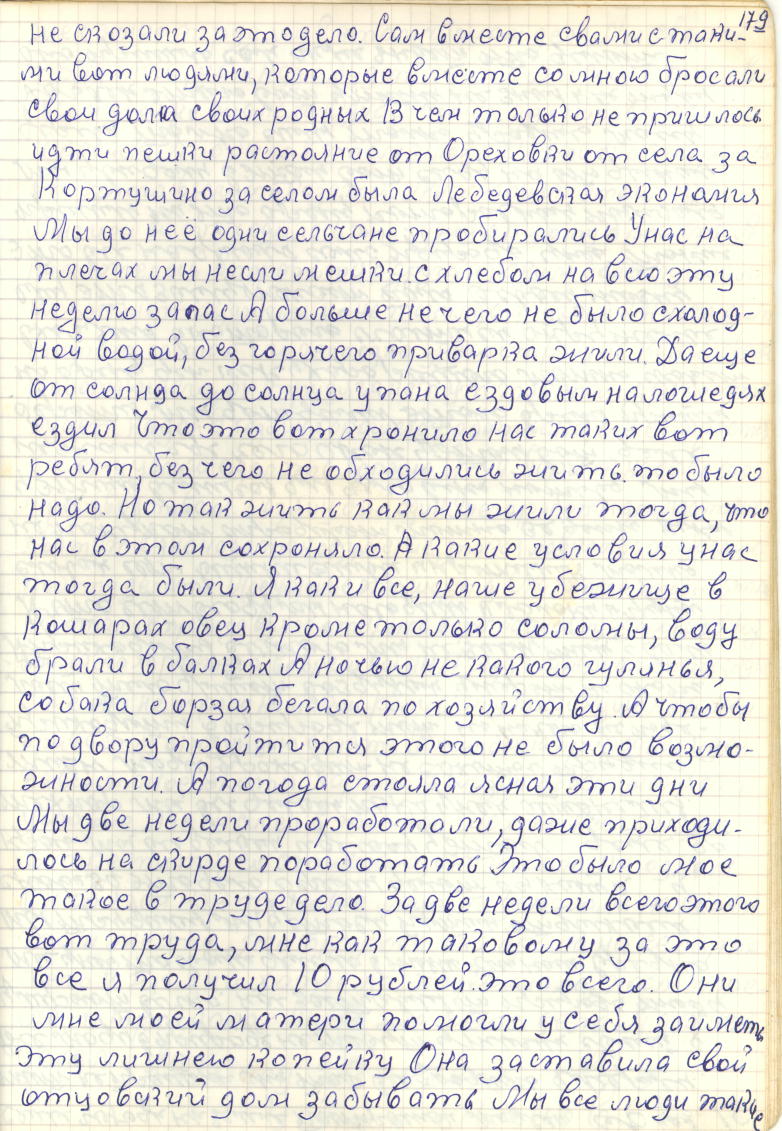 179
не сказали за это дело. Сам вместе с вами с таки-
ми вот людями, которые вместе со мною бросали
свои дома своих родных В чем только не пришлось
идти пешки растояние от Ореховки от села за
Кортушино за селом была Лебедевская экономия
Мы до неё одни сельчане пробирались У нас на
плечах мы несли мешки с хлебом на всю эту
неделю запас А больше нечего не было схолод-
ной водой, без горячего приварка жили. Да еще
от солнца до солнца у пана ездовым на лошедях
ездил Что это вот хронило нас таких вот
ребят, без чего не обходились жить. то было
надо. Но так жить как мы жили тогда, что
нас в этом сохроняло. А какие условия у нас
тогда были. Я как и все, наше убежище в
кошарах овец кроме только соломы, воду
брали в балках А ночью не какого гулянья,
собака борзая бегала по хозяйству. А чтобы
по двору пройтится этого не было возмо-
жности. А погода стояла ясная эти дни
Мы две недели проработали, даже приходи-
лось на скирде поработать Это было мое
такое в труде дело. За две недели всего этого
вот труда, мне как таковому за это
все я получил 10 рублей. это всего. Они
мне моей матери помогли у себя заиметь
эту лишнею копейку Она заставила свой
отцовский дом забывать Мы все люди такие